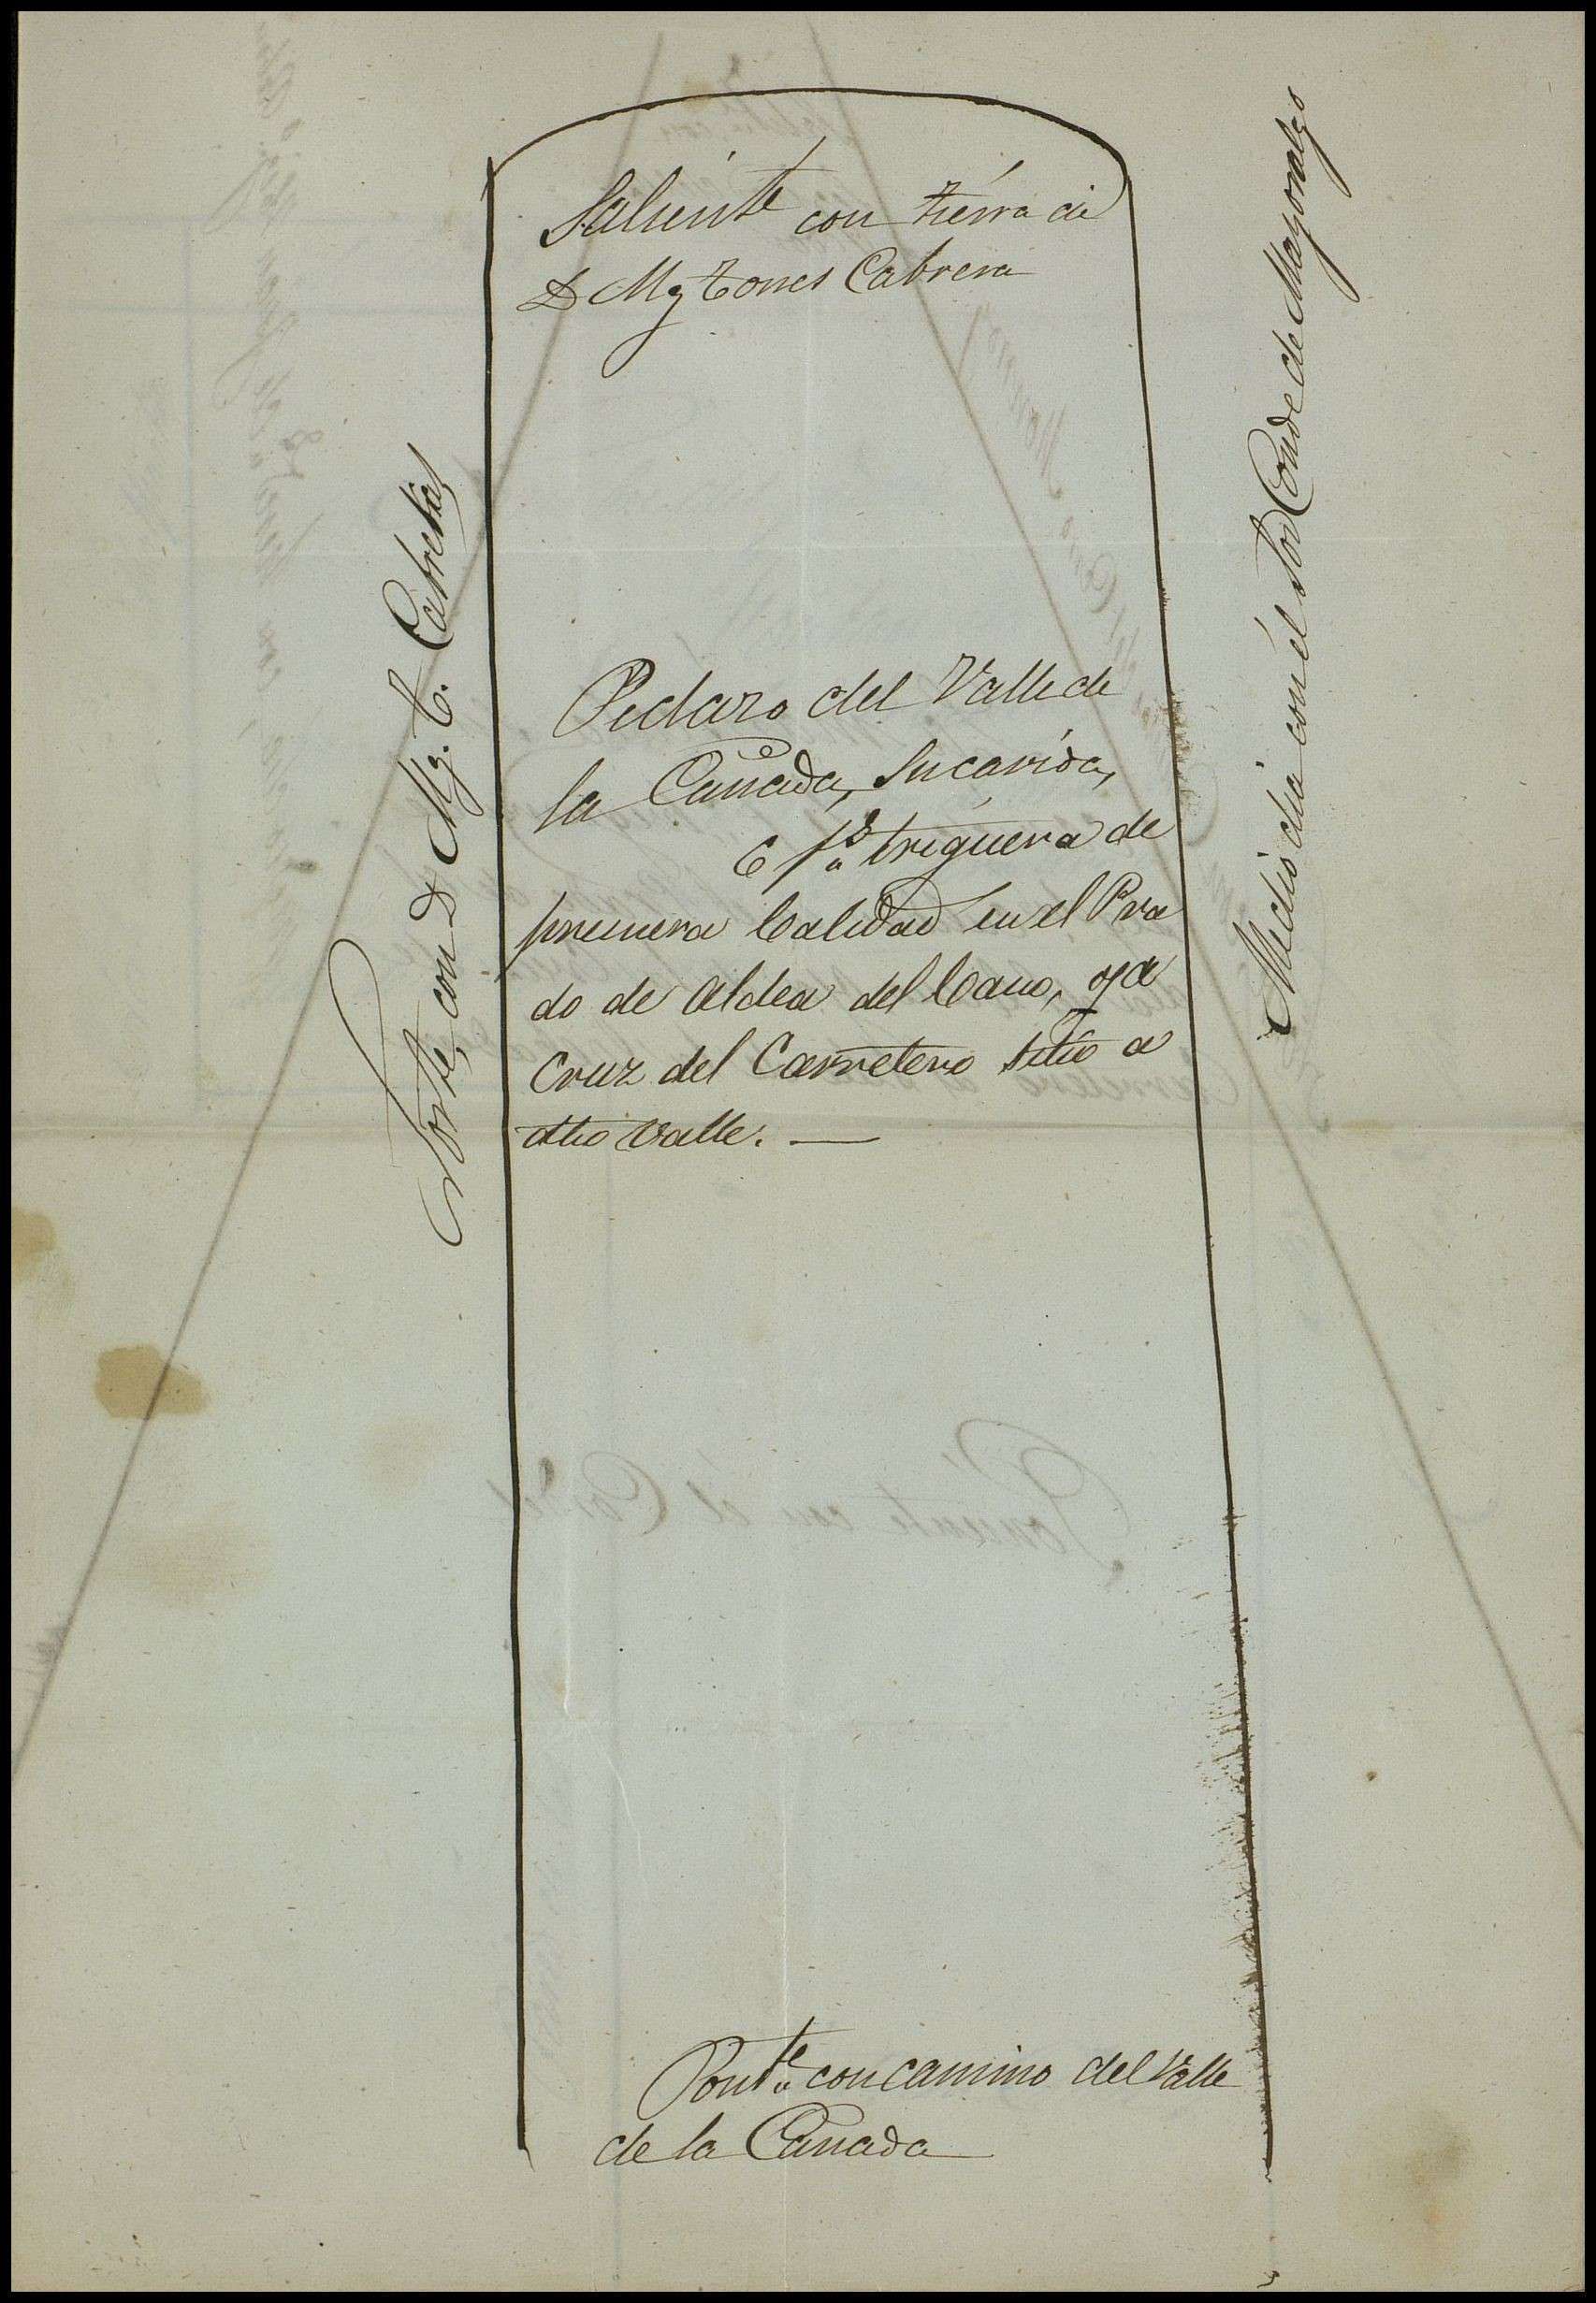 Saliente con tierra de
D Mg Torres Cabrera
Norte, con D Mg. T. Cabrera,
Medio dia con el Sor Conde de Mayoralgo
Pedazo del Valle de
la Cañada, su cavida,
6 fs triguera de
primera Calidad en el Pra
do de Aldea del Cano, oja
Cruz del Carretero sitio a
dho valle. —
Ponte con camino del Valle
de la Cañada